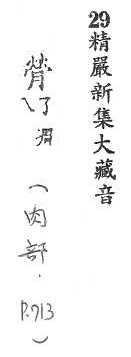 29精嚴新集大藏音
膋了凋(肉部.P.713)